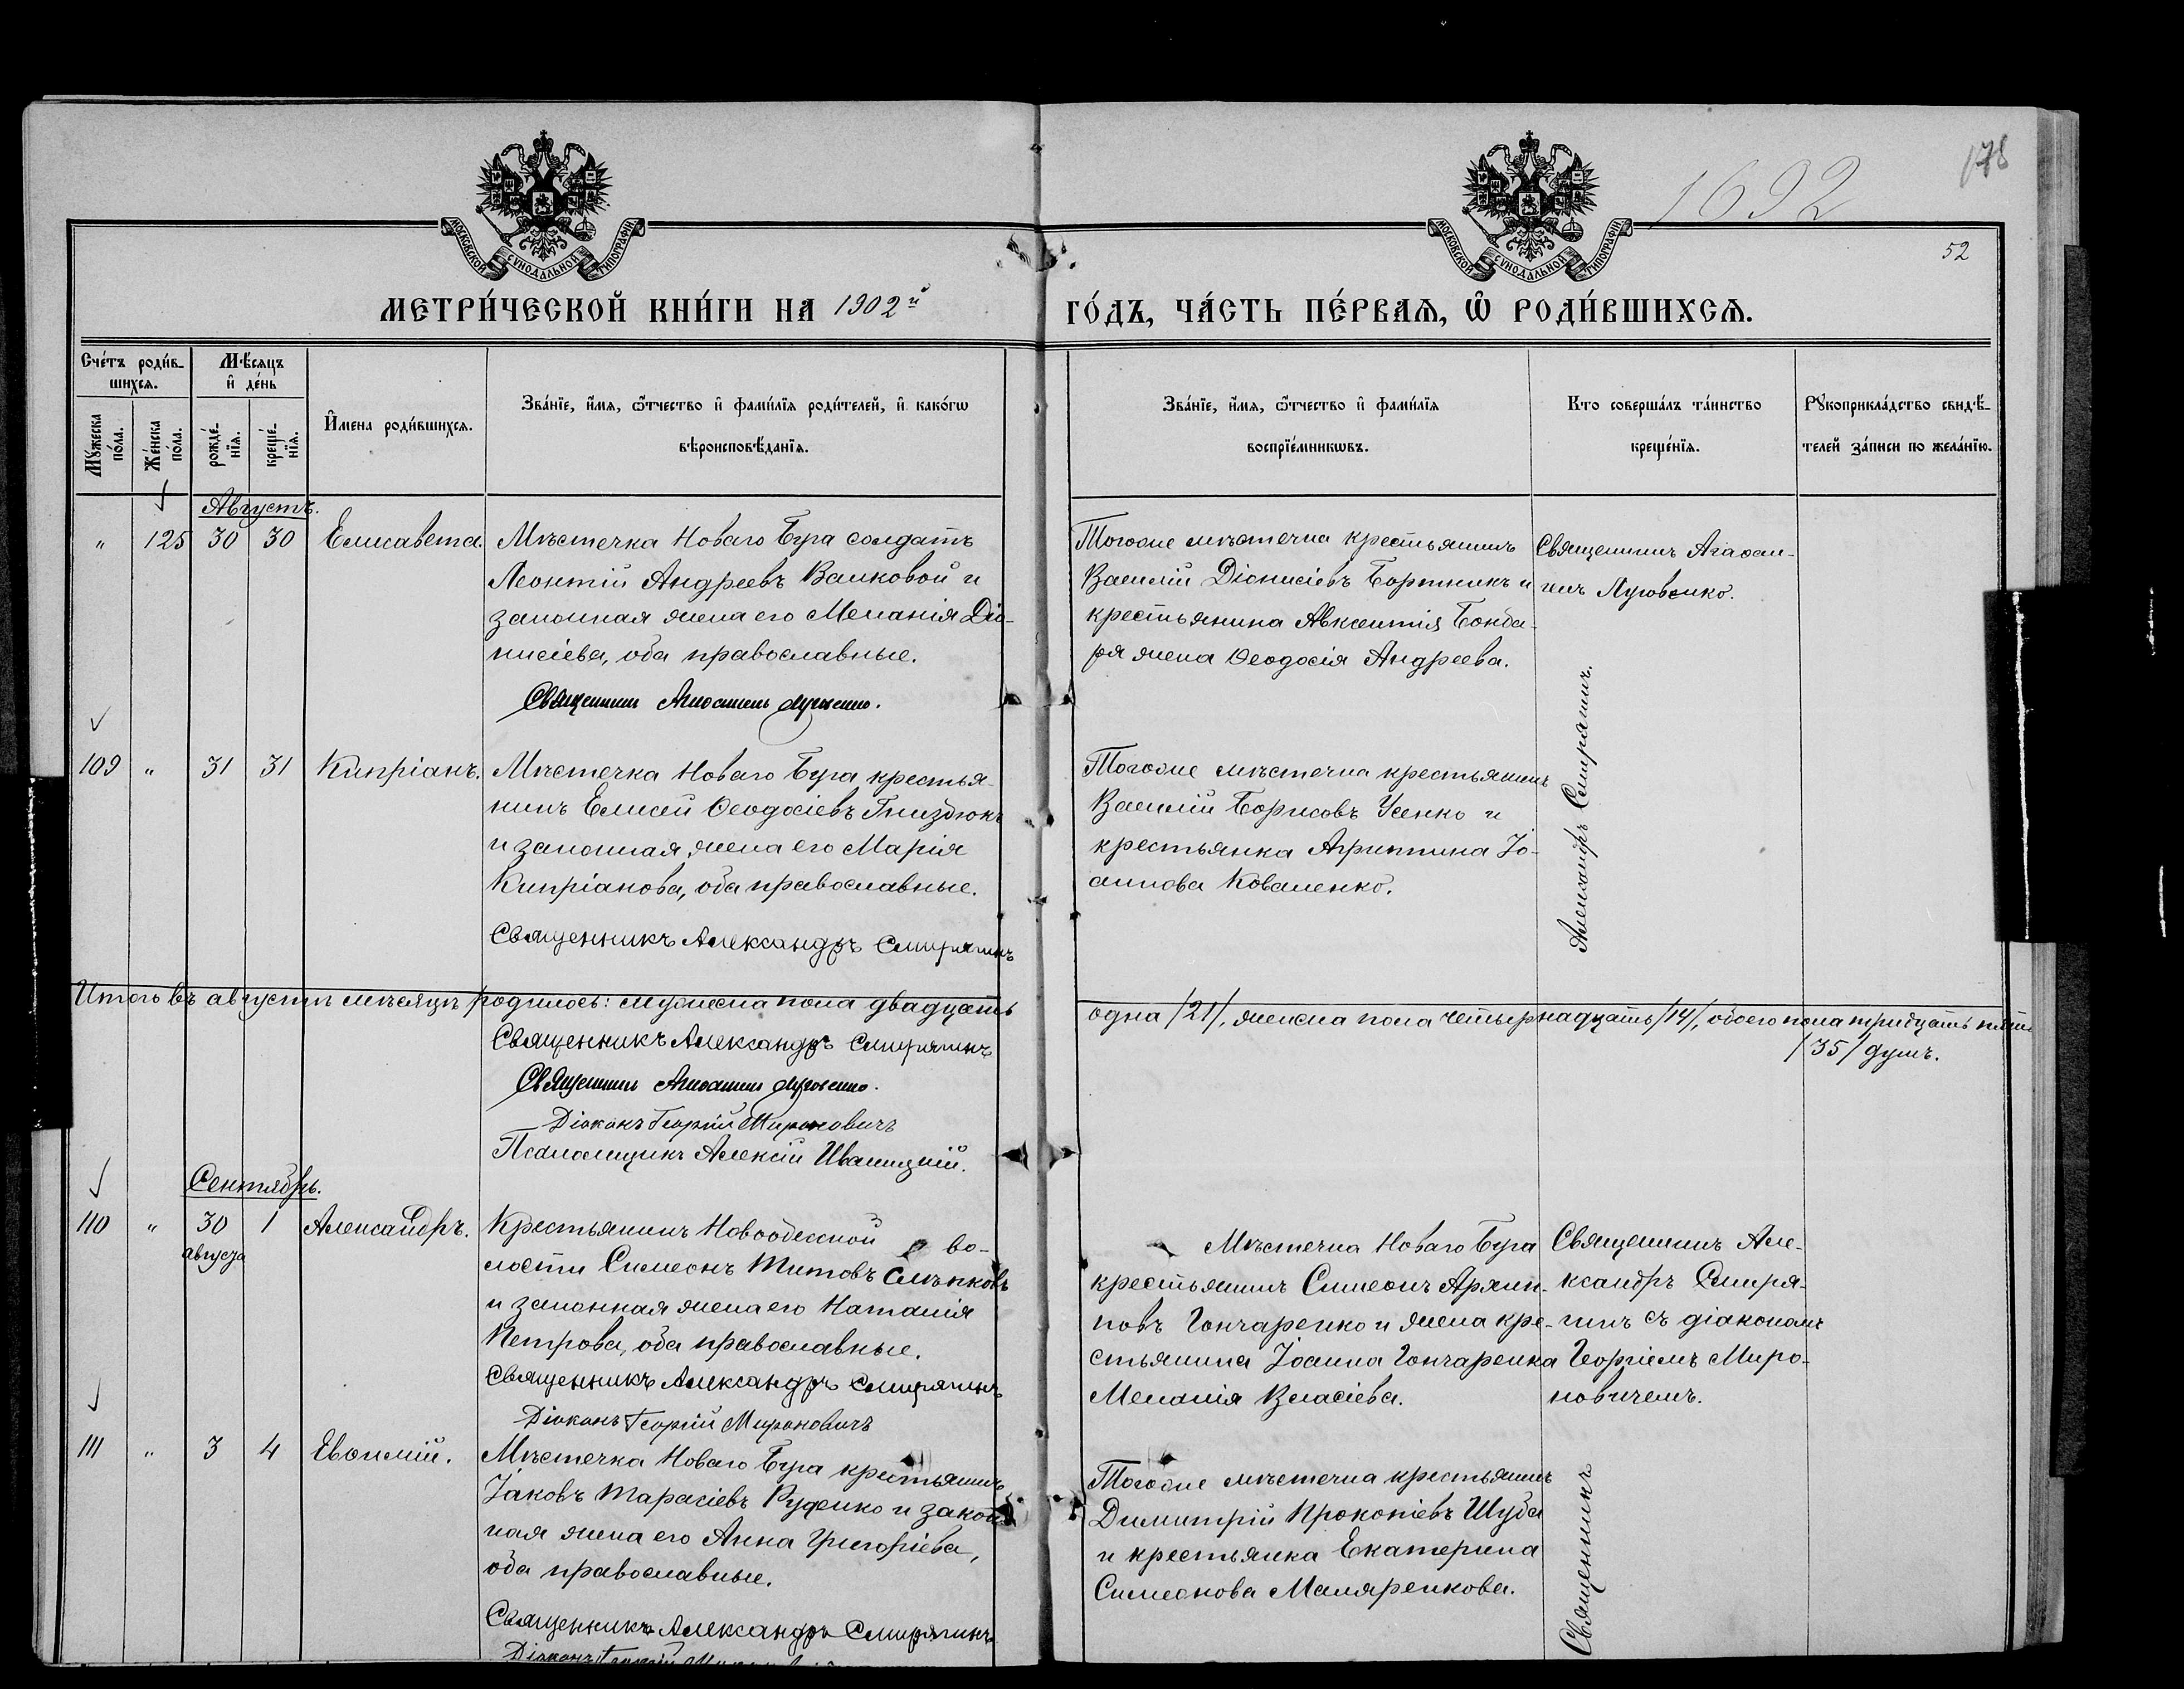 МОСКОВСКОЙ СѴНОДАЛЬНОЙ ТИПОГРАФІИ
МОСКОВСКОЙ СѴНОДАЛЬНОЙ ТИПОГРАФІИ
1692
178
52
МЕТРИ́ЧЕСКОЙ КНИ́ГИ НА 1902й
ГО́ДЪ, ЧА́СТЬ ПЕ́РВАѦ, Ѽ РОДИ́ВШИХСѦ.
Сче́тъ роди́в-
шихсѧ.
Мѣ́сѧцъ
и҆ де́нь
Мꙋ́жеска
по́ла.
Же́нска
по́ла.
рожде́-
нїѧ.
креще́-
нїѧ.
И҆мена роди́вшихсѧ.
Зва́нїе, и҆́мѧ, ѻ҆́тчество и҆ фами́лїѧ роди́телей, и҆ како́гѡ
вѣроисповѣ́данїѧ.
Зва́нїе, и҆́мѧ, ѻ҆́тчество и҆ фами́лїѧ
воспрїе́мникѡвъ.
Кто соверша́лъ та́инство
креще́нїѧ.
Рꙋкоприкла́дство свидѣ́-
телей за́писи по жела́нїю.
Августъ.
" 125 30 30 Елисавета.
Мѣстечка Новаго Буга солдатъ
Леонтій Андреевъ Валковой и
законная жена его Меланія Діо-
нисіева, оба православные.
Священникъ Агаѳангелъ Луговенко.
Тогоже мѣстечка крестьянинъ
Василій Діонисіевъ Бортникъ и
крестьянина Авксентія Бонда-
ря жена Ѳеодосія Андреева.
Священникъ Агаѳан-
гелъ Луговенко.
109 " 31 31 Кипріанъ.
Мѣстечка Новаго Буга крестья-
нинъ Елисей Ѳеодосіевъ Гниздюкъ
и законная жена его Марія
Кипріанова, оба православные.
Священникъ Александръ Смирягинъ
Тогоже мѣстечка крестьянинъ
Василій Борисовъ Усенко и
крестьянка Агриппина Іо-
аннова Коваленко.
Александръ Смирягинъ.
Итого въ августѣ мѣсяцѣ родилось: мужеска пола двадцать
одна /21/, женска пола четырнадцать /14/, обоего пола тридцать пять
/35/ душъ.
Священникъ Александръ Смирягинъ
Священникъ Агаѳангелъ Луговенко.
Діаконъ Георгій Мироновичъ
Псаломщикъ Алексій Иваницкій.
Сентябрь.
110 " 30 1 Александръ.
августа
Крестьянинъ Новоодесской во-
лости Симеонъ Титовъ Смѣтковъ
и законная жена его Наталія
Петрова, оба православные.
Священникъ Александръ Смирягинъ
Діаконъ Георгій Мироновичъ
Мѣстечка Новаго Буга
крестьянинъ Симеонъ Архип-
повъ Гончаренко и жена кре-
стьянина Іоанна Гончаренка
Меланія Власіева.
Священникъ Але-
ксандръ Смиря-
гинъ съ діакономъ
Георгіемъ Миро-
новичемъ.
111 " 3 4 Евѳимій.
Мѣстечка Новаго Буга крестьянинъ
Іаковъ Тарасіевъ Руденко и закон-
ная жена его Анна Григоріева,
оба православные.
Священникъ Александръ Смирягинъ
Діаконъ Георгій
Тогоже мѣстечка крестьянинъ
Димитрій Прокопіевъ Шуба
и крестьянка Екатерина
Симеонова Маляренкова.
Священникъ